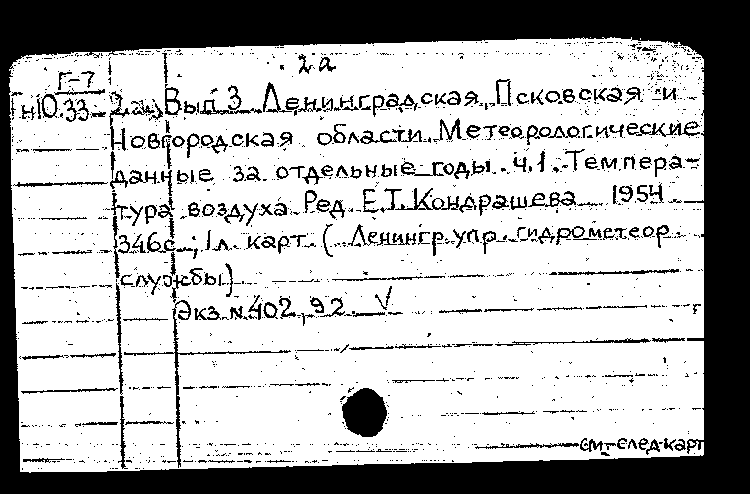 2а
Г-7
н10.33- 2а) Вып 3 Ленинградская, Псковская и
Новгородская области. Метеорологические
данные за отдельные годы. ч.1. Темпера-
тура воздуха Ред. Е.Т. Кондрашева 1954
346с.; 1л. карт. ( Ленингр. упр. гидрометеор.
службы)
Экз. № 402, 92. V
см. след карт